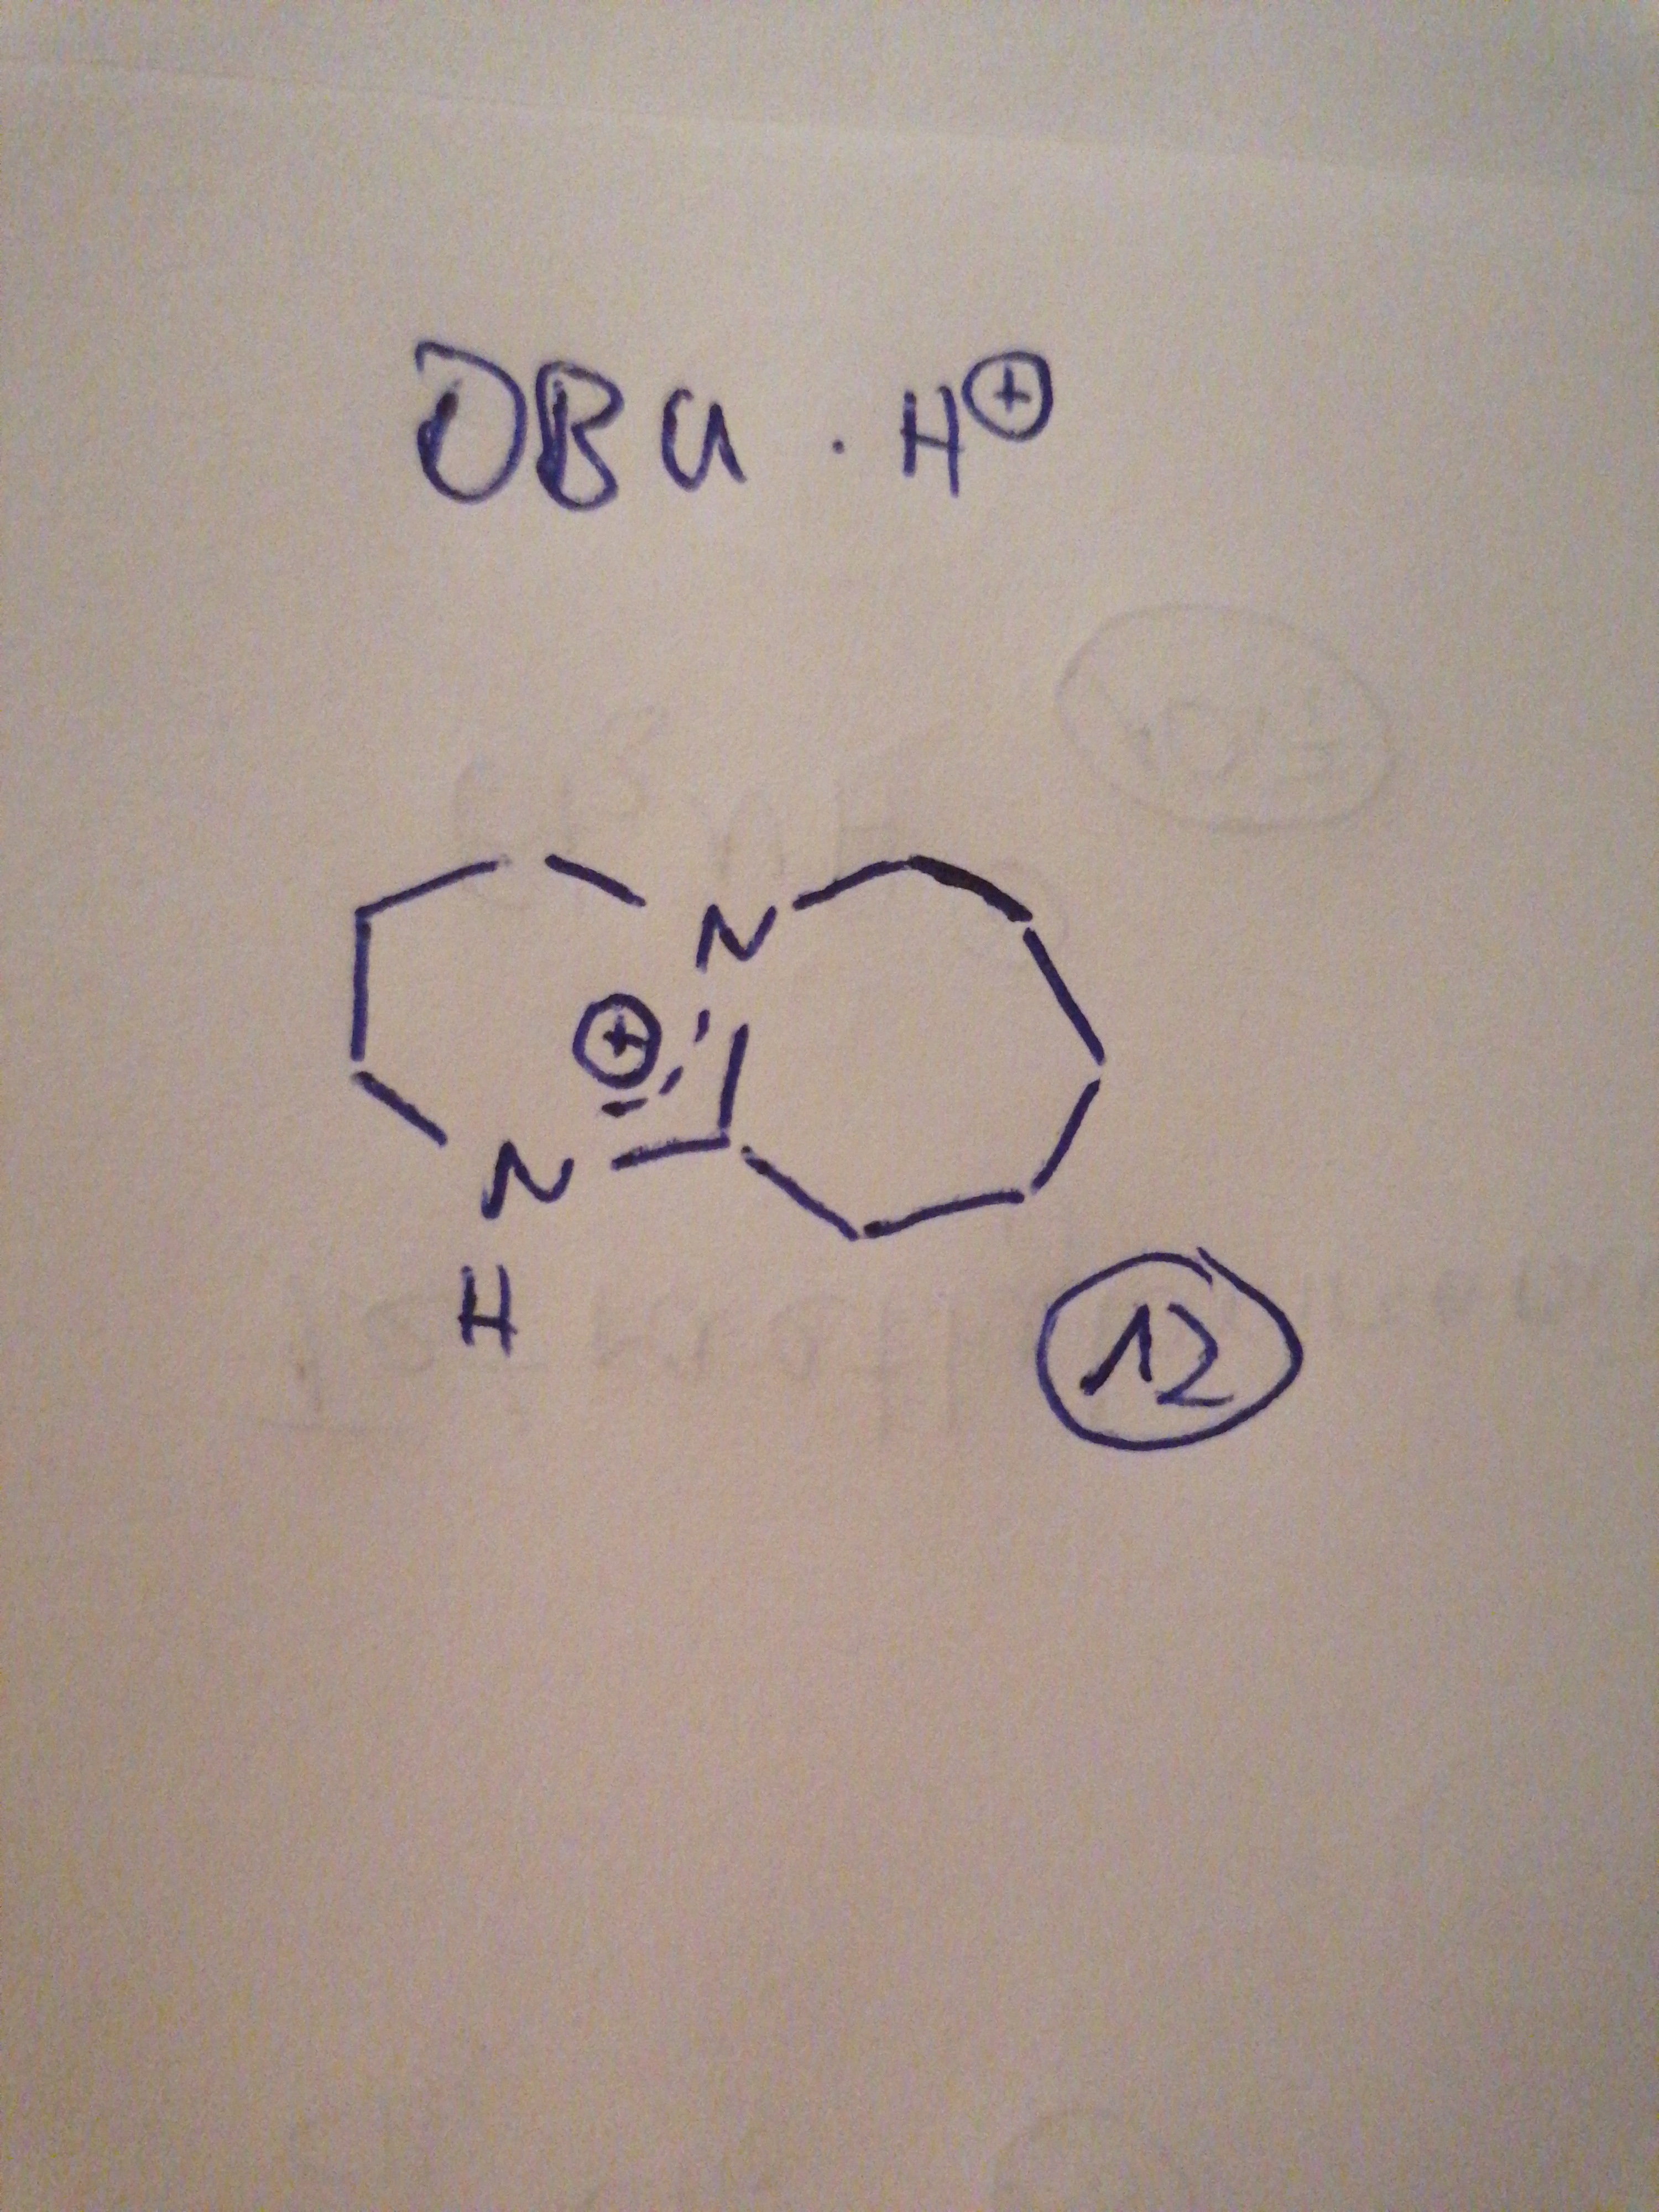 DBU · H⊕
N
⊕
N
H
12